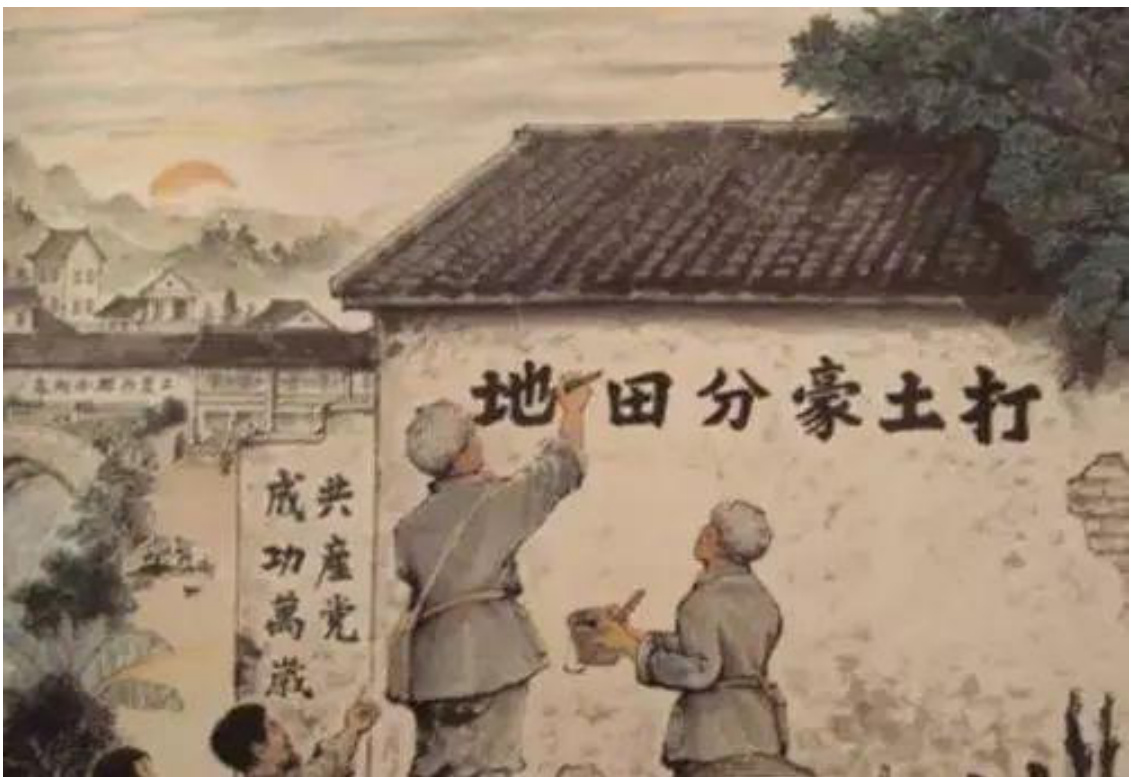 打土豪分田地
共產党
成功萬歲